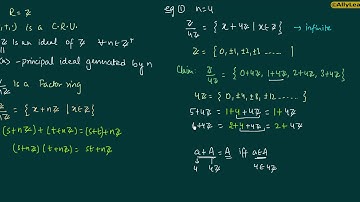 ©AllyLea
R = ℤ
,+,·) is a C.R.U.
ℤ is an ideal of ℤ ∀n∈ℤ⁺
-principal ideal generated by n
is a Factor ring
= {x+nℤ | x∈ℤ}
(s+nℤ)+(t+nℤ)=(s+t)+nℤ
(s+nℤ)(t+nℤ)=st+nℤ
eg ① n=4
ℤ/4ℤ = {x+4ℤ | x∈ℤ} → infinite
ℤ = {0, ±1, ±2, ......}
Claim: ℤ/4ℤ = {0+4ℤ, 1+4ℤ, 2+4ℤ, 3+4ℤ}
4ℤ = {0, ±4, ±8, ±12......}
5+4ℤ = 1+4+4ℤ = 1+4ℤ
6+4ℤ = 2+4+4ℤ = 2+4ℤ
a+A = A iff a∈A
4 4ℤ 4∈4ℤ